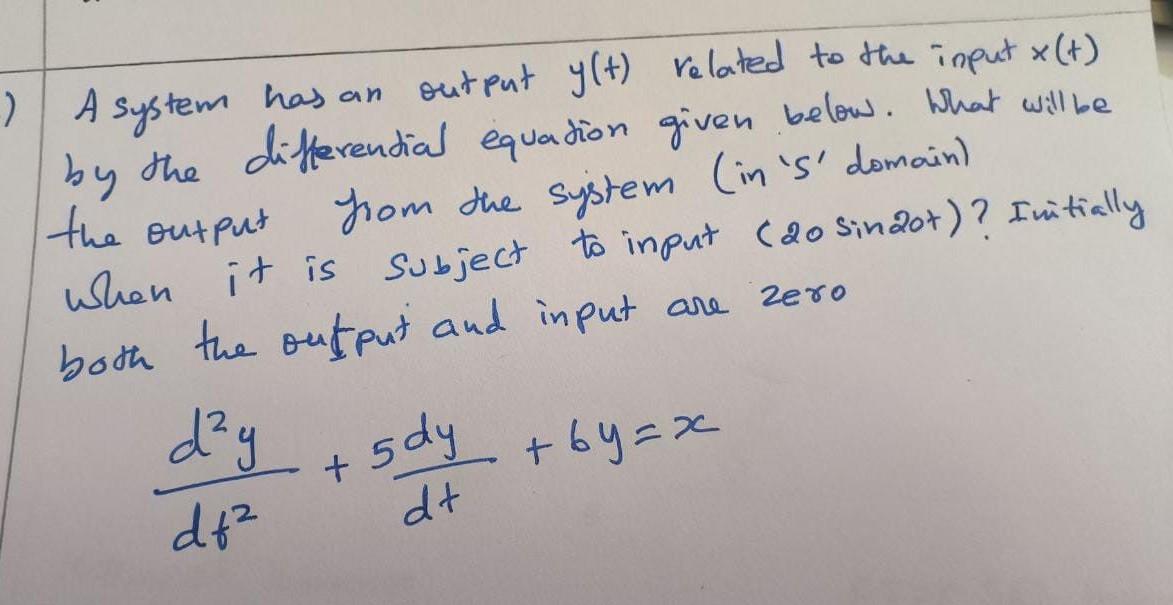 ) A system has an output y(t) related to the input x(t)
by the differential equation given below. What will be
the output from the system (in 's' domain)
when it is subject to input (20 sin20t)? Initially
both the output and input are zero
d²y/dt² + 5 dy/dt + 6y = x